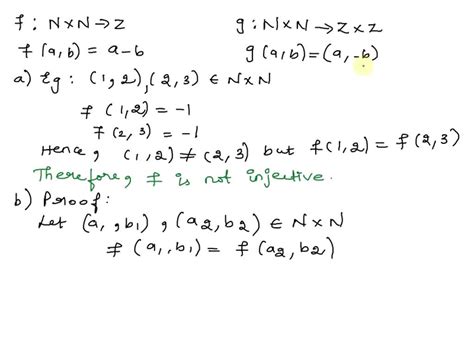 f : N×N→Z g : N×N→Z×Z
f(a,b) = a-b g(a,b)=(a,-b)
a) Eg : (1,2),(2,3) ∈ N×N
f(1,2) = -1
f(2,3) = -1
Hence, (1,2)≠(2,3) but f(1,2) = f(2,3)
Therefore, f is not injective.
b) Proof:
Let (a,,b1),(a2,b2) ∈ N×N
f(a1,b1) = f(a2,b2)